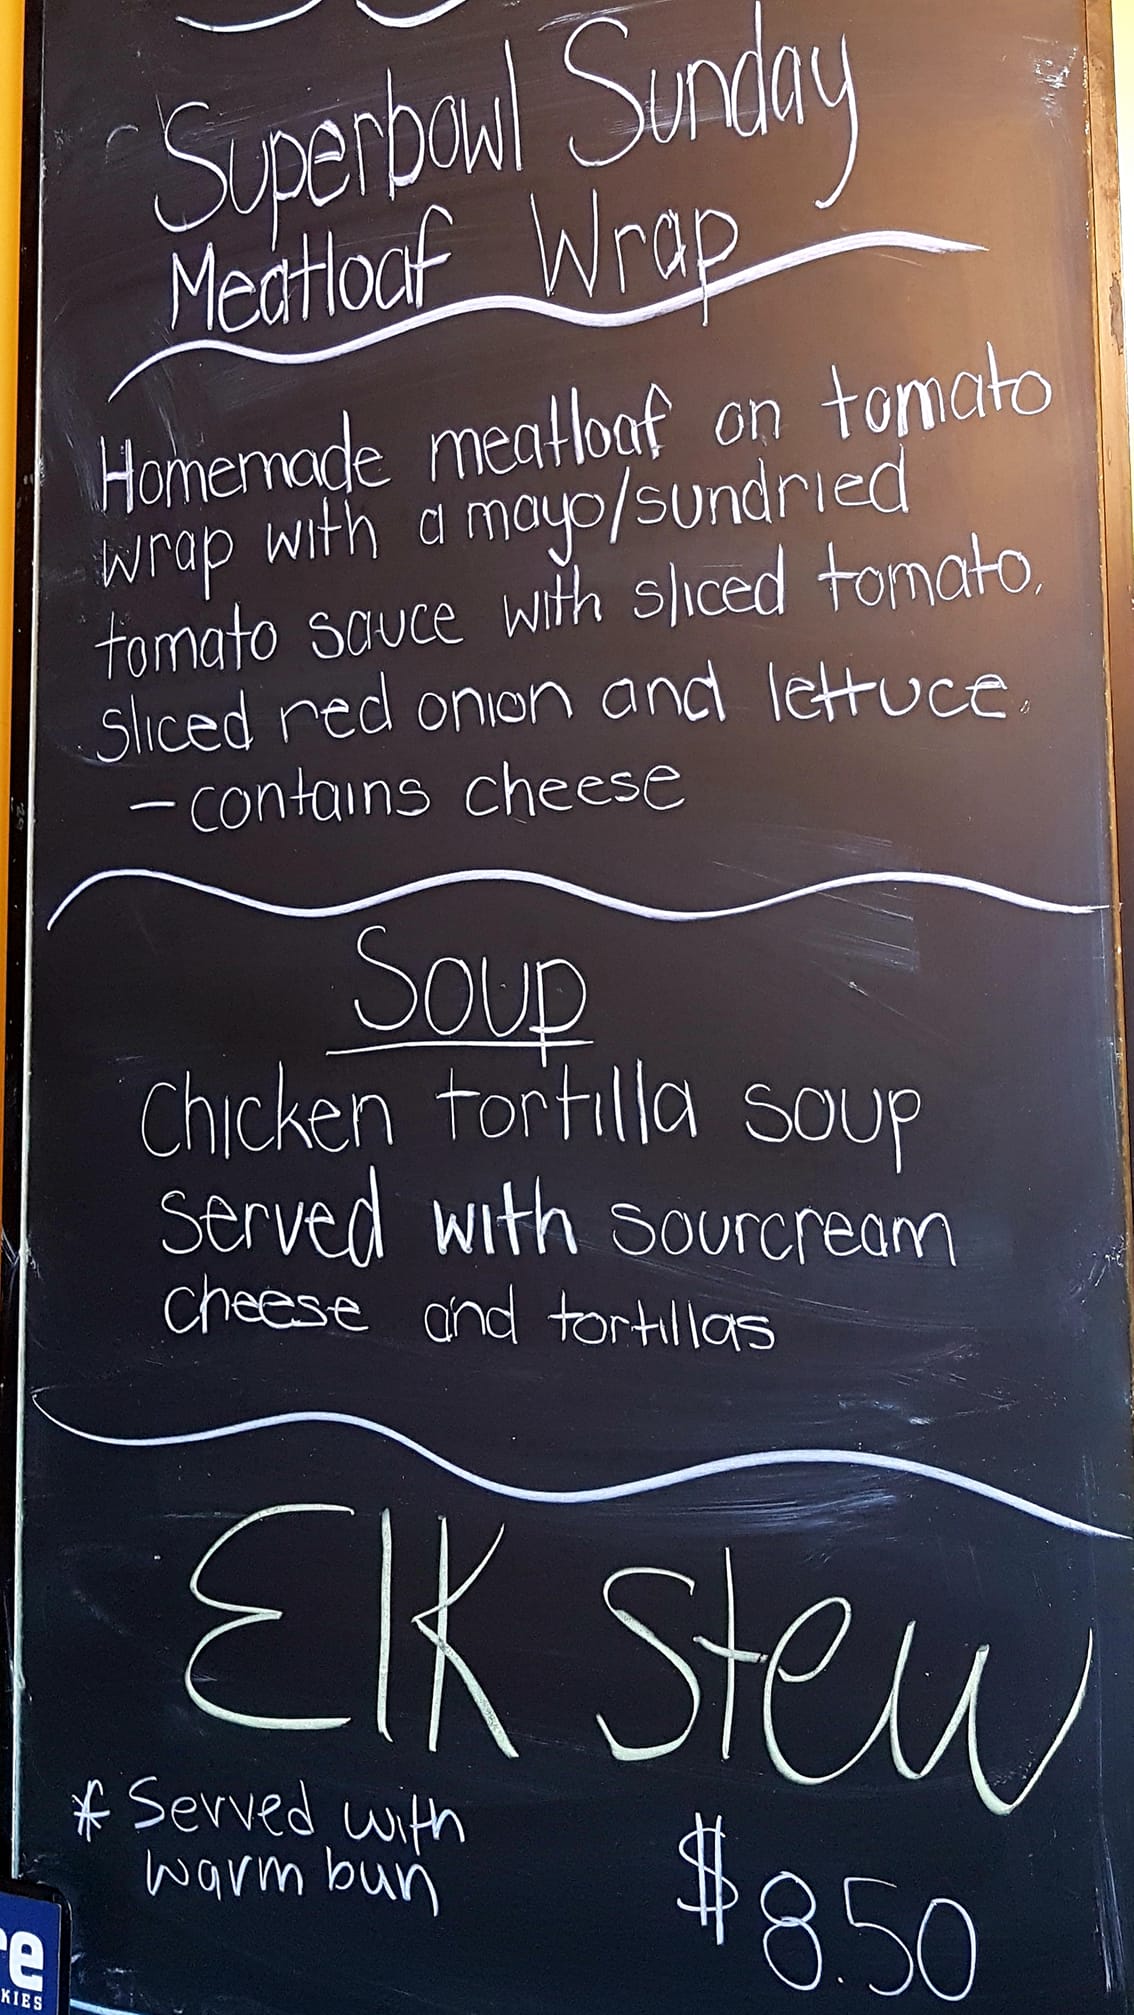 Superbowl Sunday
Meatloaf Wrap
Homemade meatloaf on tomato
wrap with a mayo/sundried
tomato sauce with sliced tomato,
sliced red onion and lettuce.
- contains cheese
Soup
Chicken tortilla soup
served with sourcream
cheese and tortillas
Elk Stew
* Served with
warm bun
$8.50
re
KIES